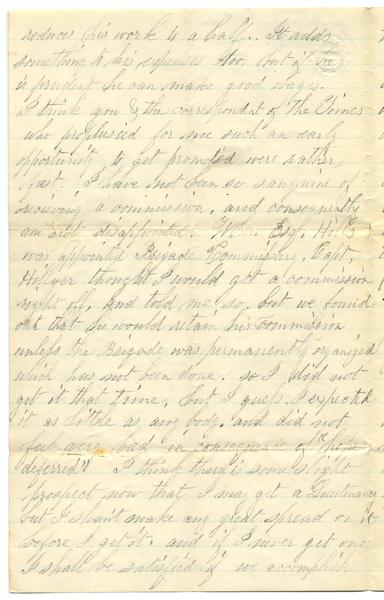 reduce his work to a half. It adds
something to his expenses too, but if he
is prudent he can make good wages.
I think you & the correspondent of the Times
who prophesied for me such an early
opportunity to get promoted were rather
fast. I have not been so sanguine of
receiving a commission, and consequently
am not disappointed. When Esq. Hill
was appointed Brigade Commissary, Capt.
Hillyer thought I would get a commission
right off, and told me so, but we found
out that he would retain his Commission
unless the Brigade was permanently organized
which has not been done. so I did not
get it that time, but I guess I expected
it as little as any body. and did not
feel very bad in consequence of "hope
deferred." I think there is some slight
prospect now that I may get a Lieutenancy
but I shan't make any great spread on it
before I get it. and if I never get one
I shall be satisfied if we accomplish